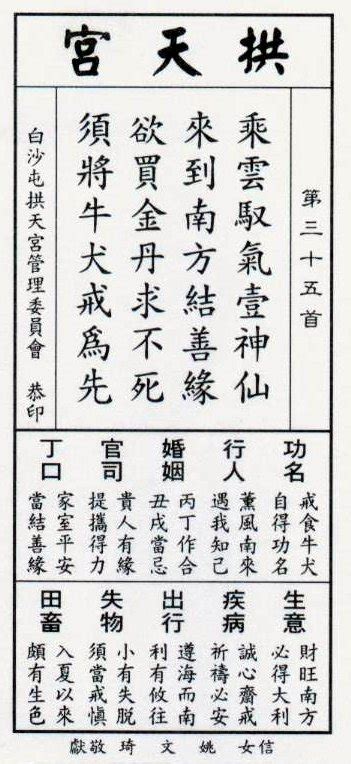 拱天宮
第三十五首
乘雲馭氣壹神仙
來到南方結善緣
欲買金丹求不死
須將牛犬戒爲先
白沙屯拱天宮管理委員會 恭印
功名
戒食牛犬
自得功名
行人
薰風南來
遇我知己
婚姻
丙丁作合
丑戌當忌
官司
貴人有緣
提攜得力
丁口
家室平安
當結善緣
生意
財旺南方
必得大利
疾病
誠心齋戒
祈禱必安
出行
遵海而南
利有攸往
失物
小有失脱
須當戒慎
田畜
入夏以來
頗有生色
信女 姚文琦 敬獻